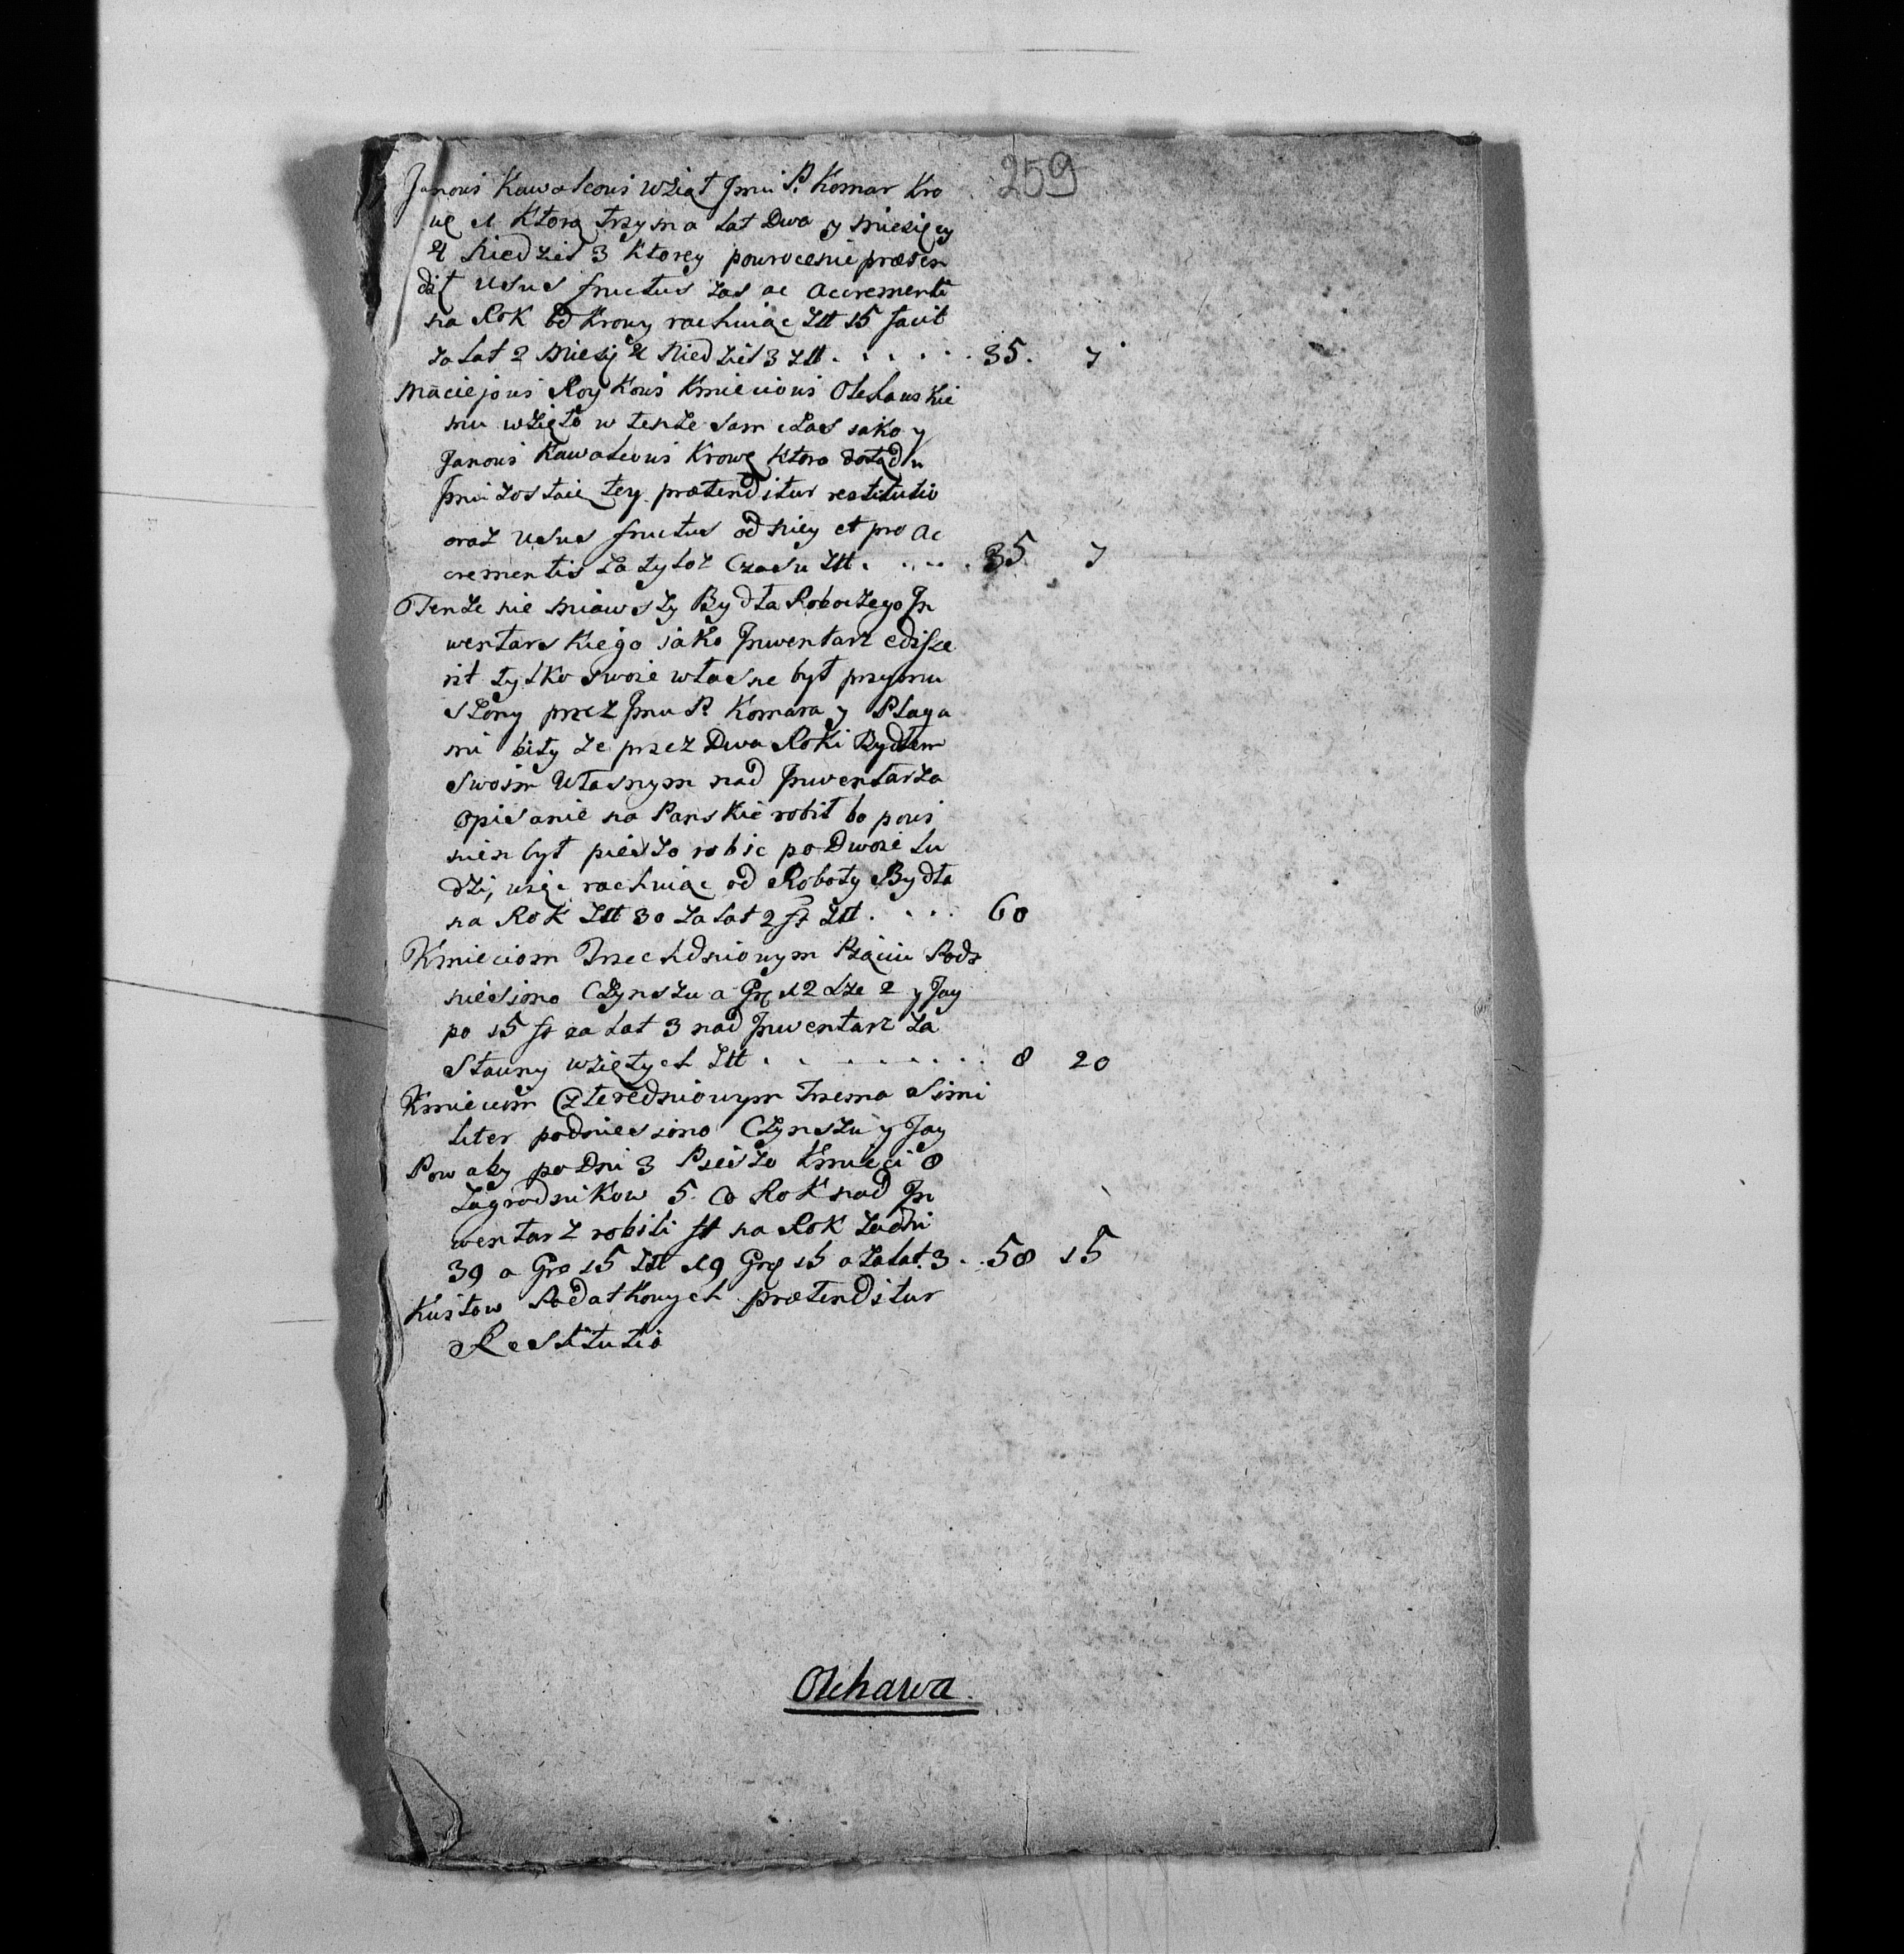 259
Janowi Kawalcowi wziął Jmci P. Komar Kro
wę 1 Ktorą trzyma lat Dwa y Miesięcy
4 Niedziel 3 Ktorey powrocenie præten
dit usus fructus zas ac accrementi
na Rok od Krowy rachuiąc Złł 15 facit
za lat 2 Miesię 4 Niedziel 3 Złł . . . . . 35. 7
Maciejowi Roykowi Kmieciowi Olchawskie
mu wzięto w tenże sam czas iako y
Janowi Kawalcowi Krowę ktora dotąd u
Jmci zostaie tey prætenditur restitutio
oraz usus fructus od niey et pro Ac
crementis za tyloż Czasu Złł . . . . . 35 7
Tenże nie miawszy Bydła Roboczego In
wentarskiego jako Inwentarz edisse
rit tylko swoie własne był przymu
szony przez Jmci P. Komara y Plaga
mi bity że przez Dwa Roki Bydłem
swoim Własnym nad Inwentarza
Opisanie na Panskie robił bo powi
nien był pieszo robic po Dwoie Lu
dzi, więc rachuiąc od Roboty Bydła
na Rok Złł 30 za lat 2 ft Złł . . . . 60
Kmieciom Trzechdniowym Piąciu Pod
niesiono Czynszu a Gr 12 2 y Jay
po 15 ft za lat 3 nad Inwentarz za
stawny wziętych Złł . . . . . . . . 8 20
Kmieciom Czterodniowym Trzema Simi
liter podniesiono Czynszu y Jay
Powaby po Dni 3 Pieszo Kmieci 8
Zagrodnikow 5. Co Rok nad In
wentarz robili ft na Rok za dni
39 a Gro 15 Złł 19 Gro 15 a za lat 3 . . 58 15
Kwitow Podatkowych prætenditur
Restitutio
Olchawa.